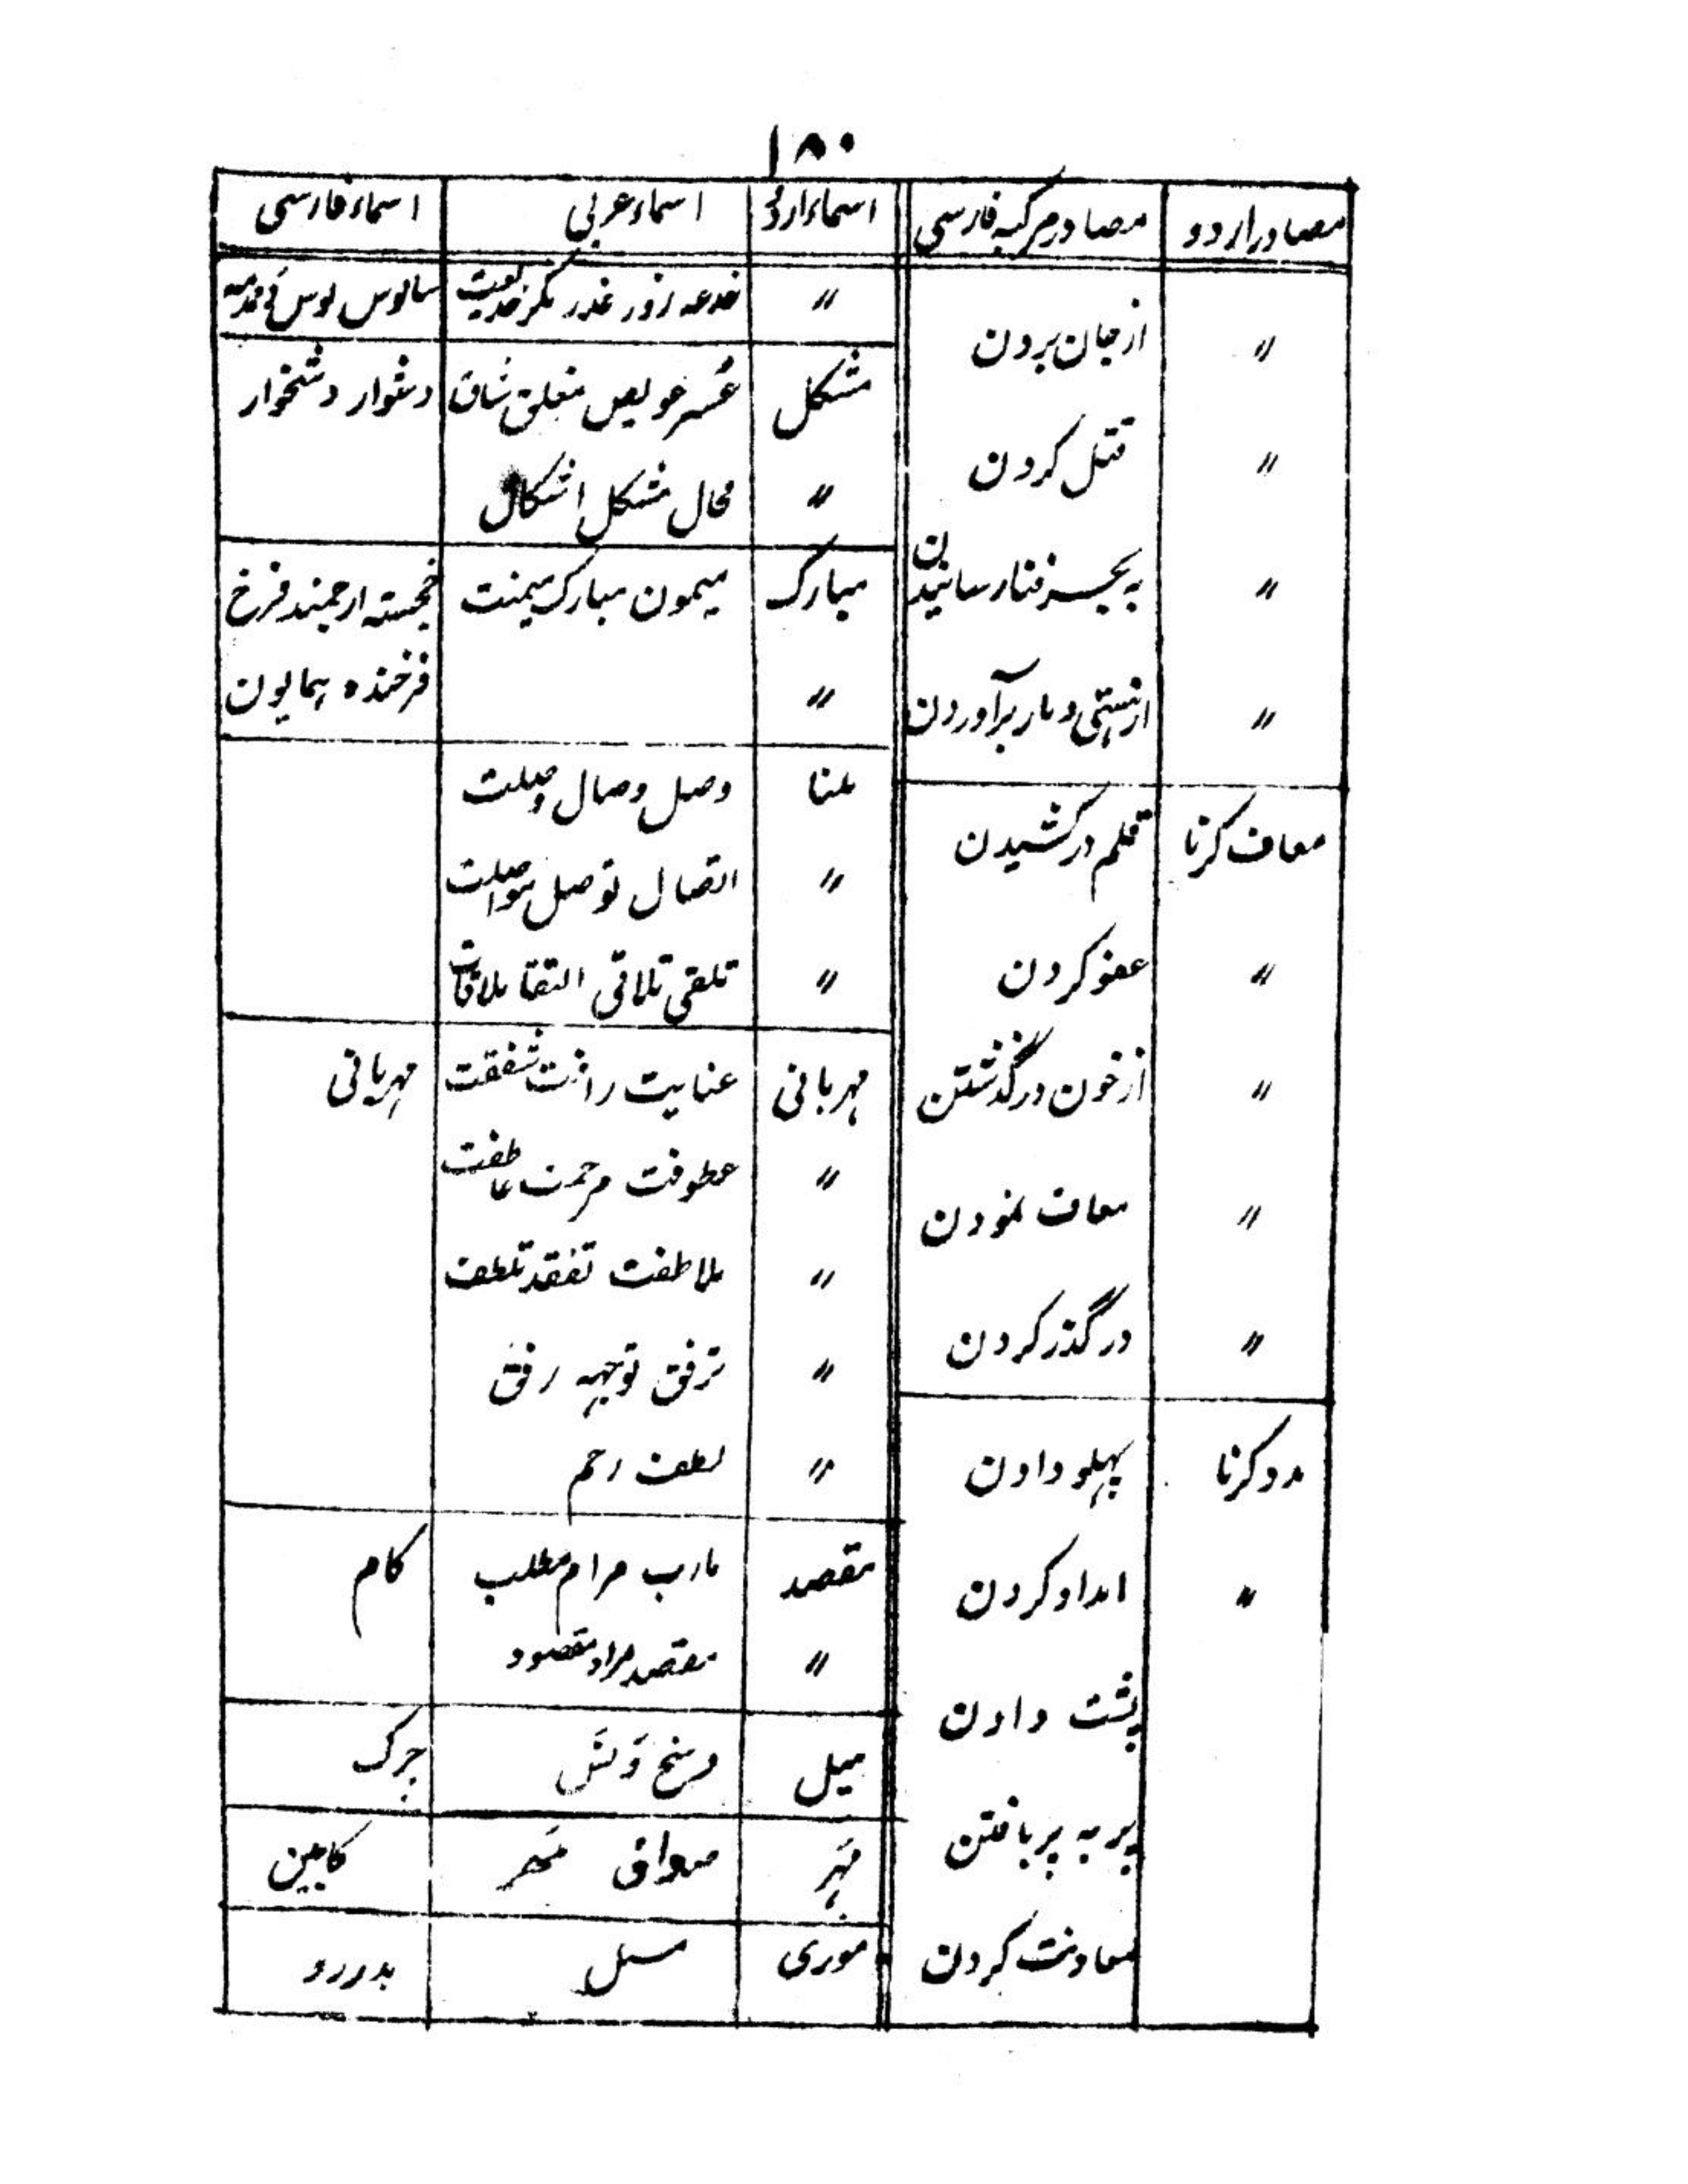 ۱۸۰
مصادر اردو | مصادر مرکبہ فارسی | اسماء اردو | اسماء عربی | اسماء فارسی
〃 | از جان بردن
〃 | قتل کردن
〃 | بہ بحر فنا رسانیدن
〃 | از ہستی دمار برآوردن
معاف کرنا | قلم درکشیدن
〃 | عفو کردن
〃 | از خون درگذشتن
〃 | معاف نمودن
〃 | درگذر کردن
مدد کرنا | پہلو دادن
〃 | امداد کردن
پشت دادن
پر بہ پر بافتن
معاونت کردن
〃 | خدعہ زور غدر مکر خدیعت | سالوس لوس
مشکل | عُسر عویص مغلق شاق | دشوار دشخوار
〃 | محال مشکل اشکال
مبارک | میمون مبارک میمنت | خجستہ ارجمند فرخ
〃 | فرخندہ ہمایون
ملنا | وصل وصال وصلت
〃 | اتصال توصل مواصلت
〃 | تلقی تلاقی التقا ملاقات
مہربانی | عنایت رافت شفقت | مہربانی
〃 | عطوفت مرحمت عاطفت
〃 | ملاطفت تفقد تلطف
〃 | ترفق توجہہ رفق
〃 | لطف رحم
مقصد | مارب مرام مطلب | کام
〃 | مقصد مراد مقصود
میل | وسخ | چرک
مَہر | صداق مَہر | کابین
موری | مسیل | بدررو